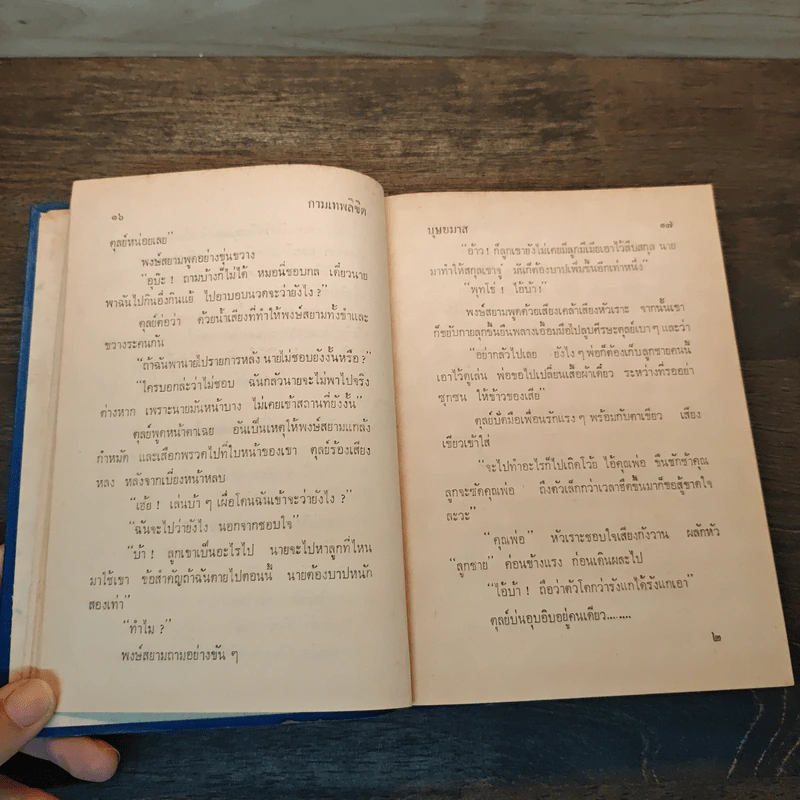 ๑๖
กามเทพลิขิต
ตุลย์หน่อยเลย"
พงษ์สยามพูดอย่างขุ่นขวาง
"อุบ๊ะ ! ถามบ้างก็ไม่ได้ หมอนี่ชอบกล เดี๋ยวนาย
พาฉันไปกินอึ่งกินแย้ ไปอาบอบนวดจะว่ายังไง ?"
ตุลย์ต่อว่า ด้วยน้ำเสียงที่ทำให้พงษ์สยามทั้งขำและ
ขวางระคนกัน
"ถ้าฉันพานายไปรายการหลัง นายไม่ชอบยังงั้นหรือ ?"
"ใครบอกล่ะว่าไม่ชอบ ฉันกลัวนายจะไม่พาไปจริง
ต่างหาก เพราะนายมันหน้าบาง ไม่เคยเข้าสถานที่ยังงั้น"
ตุลย์พูดหน้าตาเฉย อันเป็นเหตุให้พงษ์สยามแกล้ง
กำหมัด และเสือกพรวดไปที่ใบหน้าของเขา ตุลย์ร้องเสียง
หลง หลังจากเบี่ยงหน้าหลบ
"เฮ้ย ! เล่นบ้า ๆ เผื่อโดนฉันเข้าจะว่ายังไง ?"
"ฉันจะไปว่ายังไง นอกจากชอบใจ"
"บ้า ! ลูกเขาเป็นอะไรไป นายจะไปหาลูกที่ไหน
มาใช้เขา ข้อสำคัญถ้าฉันตายไปตอนนี้ นายต้องบาปหนัก
สองเท่า"
"ทำไม ?"
พงษ์สยามถามอย่างขัน ๆ
บุษยมาส
๑๗
"อ้าว ! ก็ลูกเขายังไม่เคยมีลูกมีเมียเอาไว้สืบสกุล นาย
มาทำให้สกุลเขาจู๋ มันก็ต้องบาปเพิ่มขึ้นอีกเท่าหนึ่ง"
"พุทโธ่ ! ไอ้บ้า !"
พงษ์สยามพูดด้วยเสียงเคล้าเสียงหัวเราะ จากนั้นเขา
ก็ขยับกายลุกขึ้นยืนพลางเอื้อมมือไปลูบศีรษะตุลย์เบา ๆ และว่า
"อย่ากลัวไปเลย ยังไง ๆ พ่อก็ต้องเก็บลูกชายคนนี้
เอาไว้ดูเล่น พ่อขอไปเปลี่ยนเสื้อผ้าเดี๋ยว ระหว่างที่รออย่า
ซุกซน ให้ข้าวของเสีย"
ตุลย์ปัดมือเพื่อนรักแรง ๆ พร้อมกับตาเขียว เสียง
เขียวเข้าใส่
"จะไปทำอะไรก็ไปเถิดโว้ย ไอ้คุณพ่อ ขืนชักช้าคุณ
ลูกจะซัดคุณพ่อ ถึงตัวเล็กกว่าเวลาฮึดขึ้นมาก็ขอสู้ขาดใจ
ละวะ"
"คุณพ่อ" หัวเราะชอบใจเสียงกังวาน ผลักหัว
"ลูกชาย" ค่อนข้างแรง ก่อนเดินผละไป
"ไอ้บ้า ! ถือว่าตัวโตกว่ารังแกได้รังแกเอา"
ตุลย์บ่นอุบอิบอยู่คนเดียว.......
๒